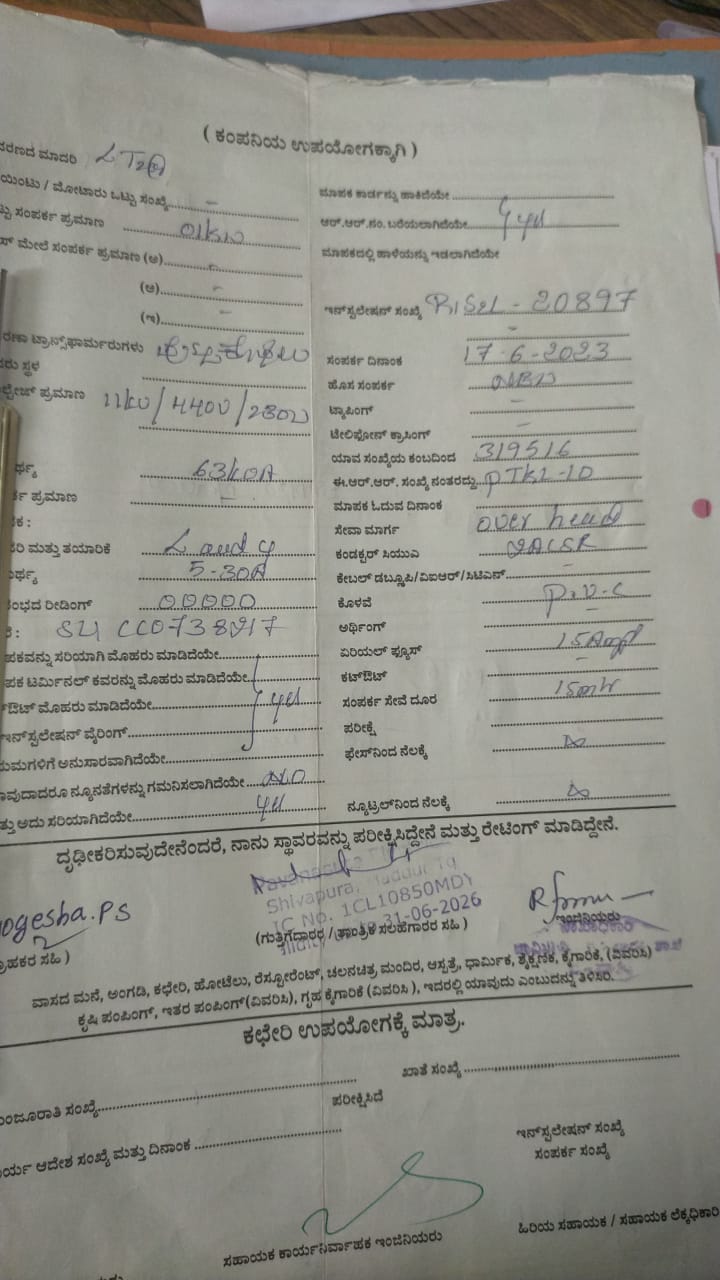 ( ಕಂಪನಿಯ ಉಪಯೋಗಕ್ಕಾಗಿ )
ರಣದ ಮಾದರಿ LT2(a)
ಯಿಂಟು / ಮೋಟಾರು ಒಟ್ಟು ಸಂಖ್ಯೆ -
ಟ್ಟು ಸಂಪರ್ಕ ಪ್ರಮಾಣ 01kw
ಸ್ ಮೇಲೆ ಸಂಪರ್ಕ ಪ್ರಮಾಣ (ಅ) -
(ಆ) -
(ಇ) -
ರಣಾ ಟ್ರಾನ್ಸ್‌ಫಾರ್ಮರುಗಳು
ರು ಸ್ಥಳ
ಲ್ಟೇಜ್ ಪ್ರಮಾಣ 11kv/440v/230v
ರ್ಥ್ಯ 63kVA
ರ್ಕ ಪ್ರಮಾಣ -
ಕ :
ರಿ ಮತ್ತು ತಯಾರಿಕೆ L and g
ರ್ಥ್ಯ 5-30A
ಂಭದ ರೀಡಿಂಗ್ 00000
ಪಕವನ್ನು ಸರಿಯಾಗಿ ಮೊಹರು ಮಾಡಿದೆಯೇ
ಪಕ ಟರ್ಮಿನಲ್ ಕವರನ್ನು ಮೊಹರು ಮಾಡಿದೆಯೇ
ಔಟ್ ಮೊಹರು ಮಾಡಿದೆಯೇ yes
ಇನ್‌ಸ್ಟಲೇಷನ್ ವೈರಿಂಗ್
ಯಮಗಳಿಗೆ ಅನುಸಾರವಾಗಿದೆಯೇ
ಾವುದಾದರೂ ನ್ಯೂನತೆಗಳನ್ನು ಗಮನಿಸಲಾಗಿದೆಯೇ NO
ತ್ತು ಅದು ಸರಿಯಾಗಿದೆಯೇ yes
ಮಾಪಕ ಕಾರ್ಡನ್ನು ಹಾಕಿದೆಯೇ
ಆರ್.ಆರ್.ನಂ. ಬರೆಯಲಾಗಿದೆಯೇ yes
ಮಾಪಕದಲ್ಲಿ ಹಾಳೆಯನ್ನು ಇಡಲಾಗಿದೆಯೇ
ಇನ್‌ಸ್ಟಲೇಷನ್ ಸಂಖ್ಯೆ - 20897
ಸಂಪರ್ಕ ದಿನಾಂಕ 17-6-2023
ಹೊಸ ಸಂಪರ್ಕ New
ಟ್ಯಾಪಿಂಗ್ -
ಟೆಲಿಫೋನ್ ಕ್ರಾಸಿಂಗ್ -
ಯಾವ ಸಂಖ್ಯೆಯ ಕಂಬದಿಂದ 319516
ಈ.ಆರ್.ಆರ್. ಸಂಖ್ಯೆ ನಂತರದ್ದು PTKL-10
ಮಾಪಕ ಓದುವ ದಿನಾಂಕ
ಸೇವಾ ಮಾರ್ಗ over head
ಕಂಡಕ್ಟರ್ ಸಿಯುಎ
ಕೇಬಲ್ ಡಬ್ಲ್ಯೂಪಿ/ವಿಐಆರ್/ಸಿಟಿಎಸ್ -
ಕೊಳವೆ P.V.C
ಅರ್ಥಿಂಗ್
ಏರಿಯಲ್ ಫ್ಯೂಸ್ 15Amp
ಕಟ್‌ಔಟ್ -
ಸಂಪರ್ಕ ಸೇವೆ ದೂರ 15mtr
ಪರೀಕ್ಷೆ
ಫೇಸ್‌ನಿಂದ ನೆಲಕ್ಕೆ ∞
ನ್ಯೂಟ್ರಲ್‌ನಿಂದ ನೆಲಕ್ಕೆ ∞
ದೃಢೀಕರಿಸುವುದೇನೆಂದರೆ, ನಾನು ಸ್ಥಾವರವನ್ನು ಪರೀಕ್ಷಿಸಿದ್ದೇನೆ ಮತ್ತು ರೇಟಿಂಗ್ ಮಾಡಿದ್ದೇನೆ.
ogesha.PS
ಾಹಕರ ಸಹಿ )
Shivapura, Maddur Tq
IC No. 1CL10850MDY
31-06-2026
(ಗುತ್ತಿಗೆದಾರರ / ತಾಂತ್ರಿಕ ಸಲಹೆಗಾರರ ಸಹಿ )
ಇಂಜಿನಿಯರು
ವಾಸದ ಮನೆ, ಅಂಗಡಿ, ಕಛೇರಿ, ಹೋಟೆಲು, ರೆಸ್ಟೋರೆಂಟ್, ಚಲನಚಿತ್ರ ಮಂದಿರ, ಆಸ್ಪತ್ರೆ, ಧಾರ್ಮಿಕ, ಶೈಕ್ಷಣಿಕ, ಕೈಗಾರಿಕೆ, (ವಿವರಿಸಿ)
ಕೃಷಿ ಪಂಪಿಂಗ್, ಇತರ ಪಂಪಿಂಗ್(ವಿವರಿಸಿ), ಗೃಹ ಕೈಗಾರಿಕೆ (ವಿವರಿಸಿ ), ಇದರಲ್ಲಿ ಯಾವುದು ಎಂಬುದನ್ನು ತಿಳಿಸಿರಿ.
ಕಛೇರಿ ಉಪಯೋಗಕ್ಕೆ ಮಾತ್ರ.
ಂಜೂರಾತಿ ಸಂಖ್ಯೆ
ಖಾತೆ ಸಂಖ್ಯೆ
ಪರೀಕ್ಷಿಸಿದೆ
ರ್ಯ ಆದೇಶ ಸಂಖ್ಯೆ ಮತ್ತು ದಿನಾಂಕ
ಇನ್‌ಸ್ಟಲೇಷನ್ ಸಂಖ್ಯೆ
ಸಂಪರ್ಕ ಸಂಖ್ಯೆ
ಸಹಾಯಕ ಕಾರ್ಯನಿರ್ವಾಹಕ ಇಂಜಿನಿಯರು
ಹಿರಿಯ ಸಹಾಯಕ / ಸಹಾಯಕ ಲೆಕ್ಕಧಿಕಾರಿ